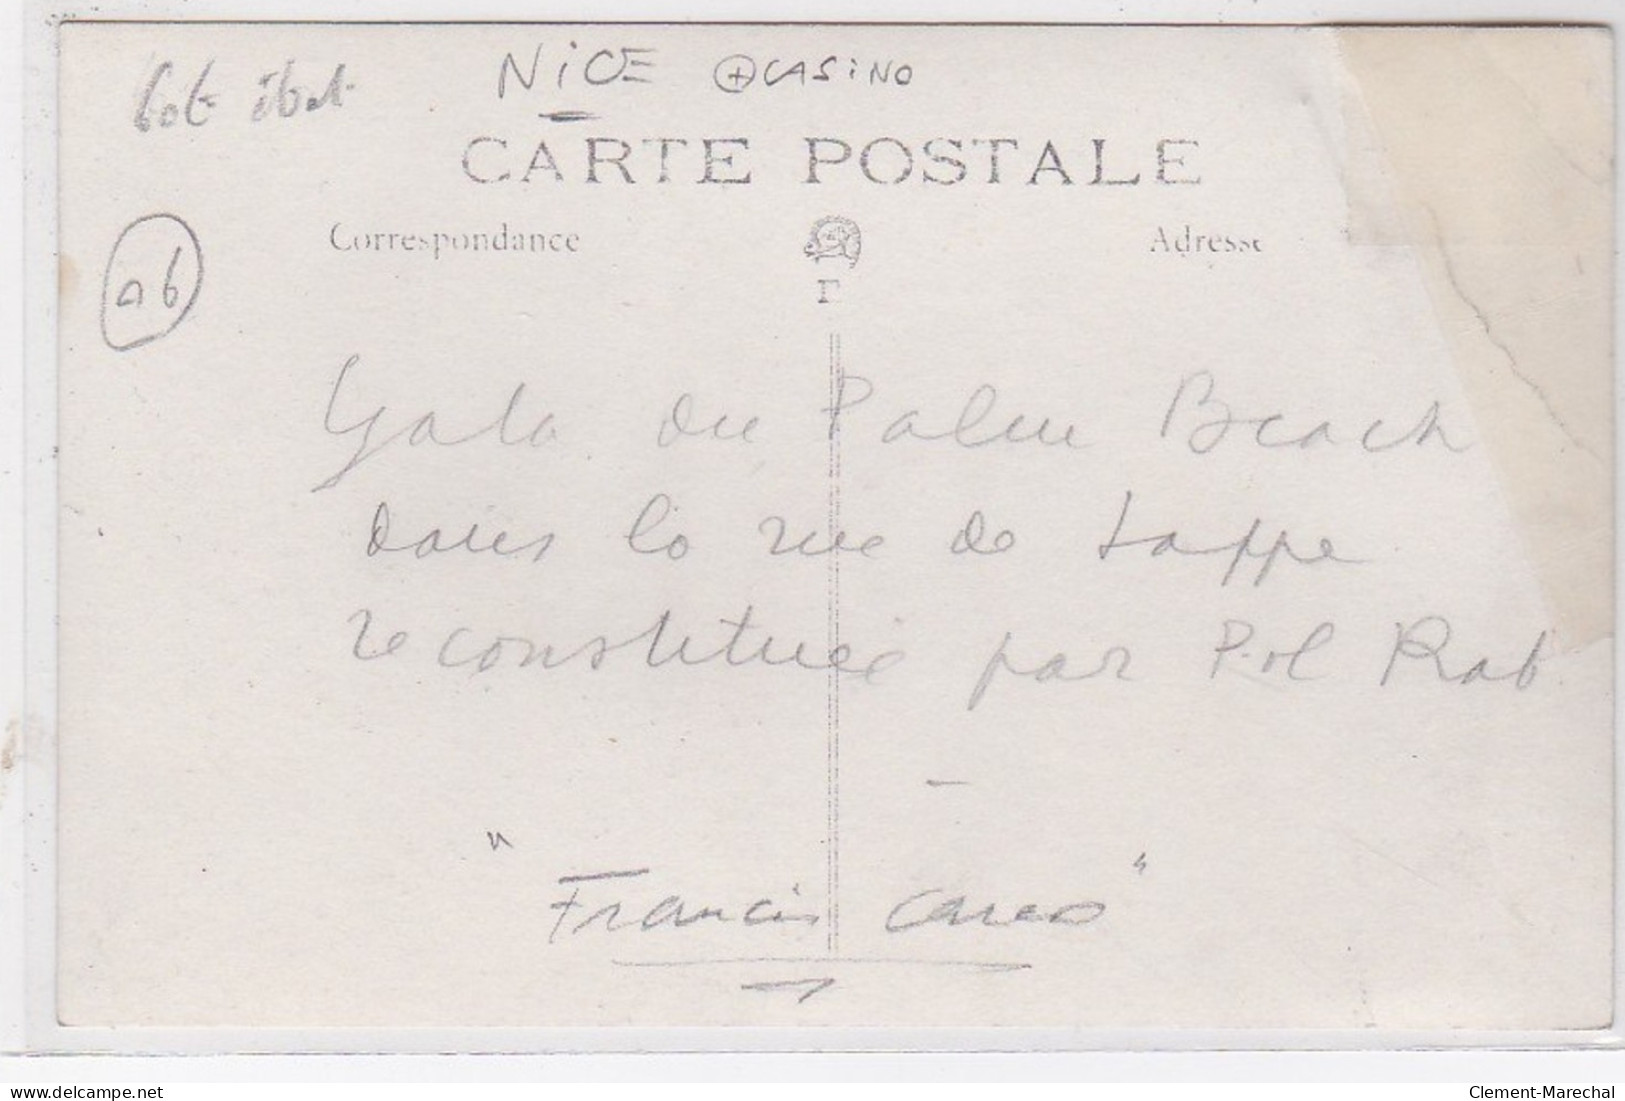 bot état
NiCE + CASiNO
CARTE POSTALE
Correspondance
Adresse
06
Gala du Palm Beach
dans la rue de Lappe
reconstituée par Pol Rab
–
" Francis Carco "
delcampe.net
Clement-Marechal